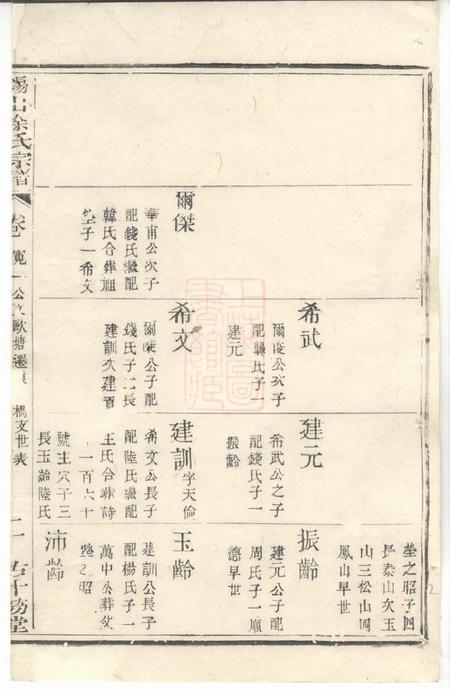 塋之昭子四
長泰山次玉
山三松山四
鳳山早世
希武
爾俊公次子
配龔氏子一
建元
建元
希武公之子
配錢氏子一
振齡
振齡
建元公子配
周氏子一順
德早世
爾傑
華甫公次子
配錢氏繼配
韓氏合葬祖
塋子一希文
希文
爾傑公子配
錢氏子二長
建訓次建百
建訓字天倫
希文公長子
配陸氏繼配
王氏合葬詩
一百六十
號主穴子三
長玉齡陸氏
玉齡
建訓公長子
配楊氏子一
萬中公葬父
塋之昭
沛齡
錫山徐氏宗譜
卷
寬一公
歐塘遷
橋支世表
二